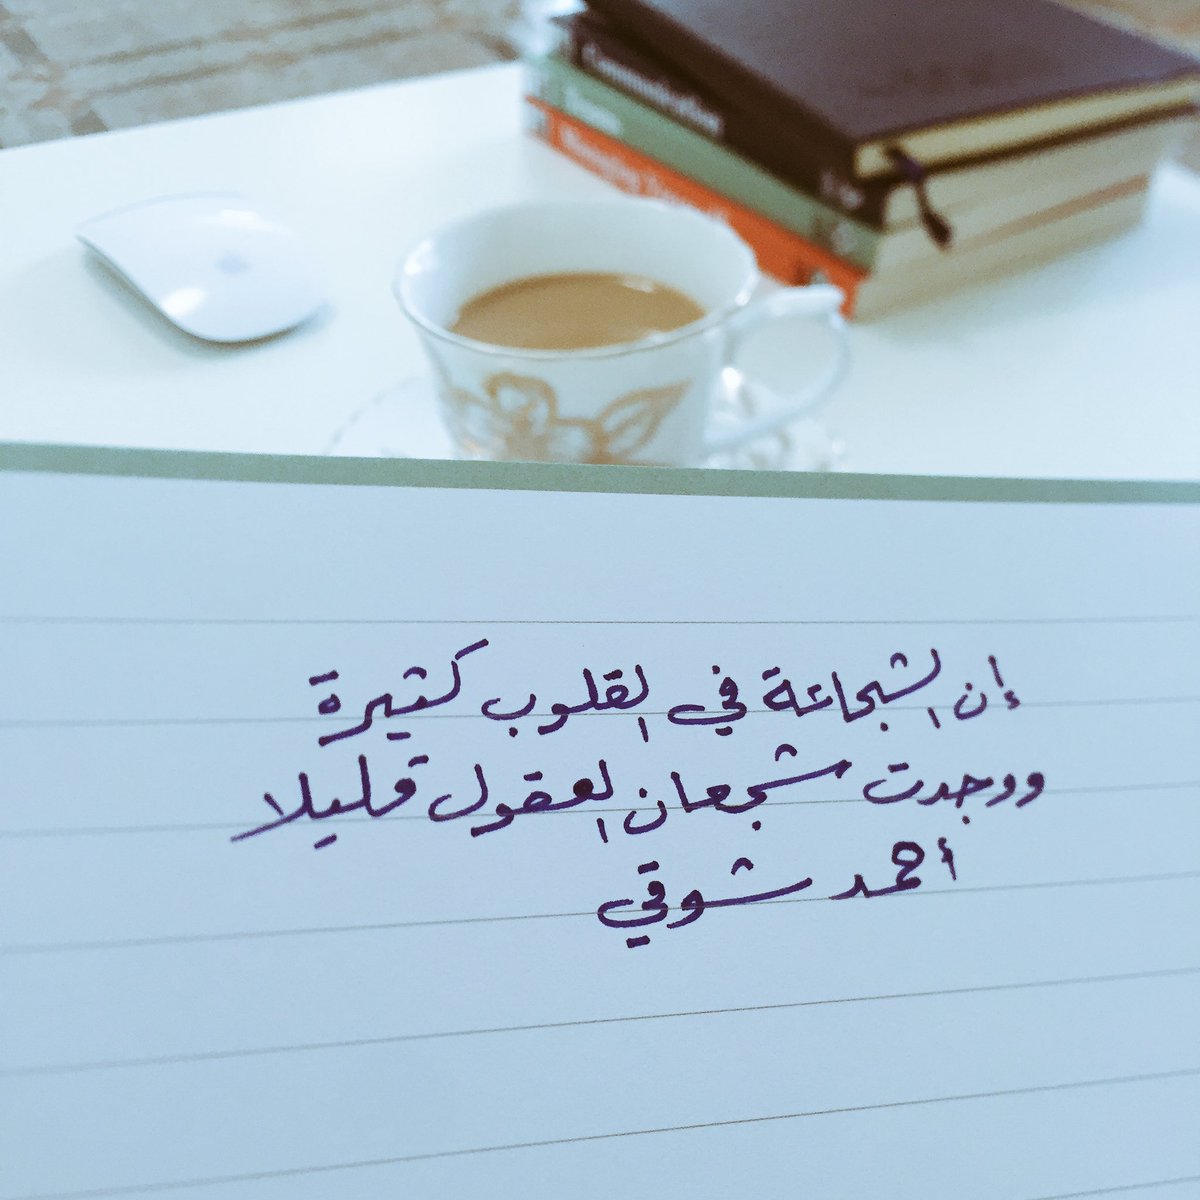 Communication
إن الشجاعة في القلوب كثيرة
ووجدت شجعان العقول قليلا
أحمد شوقي